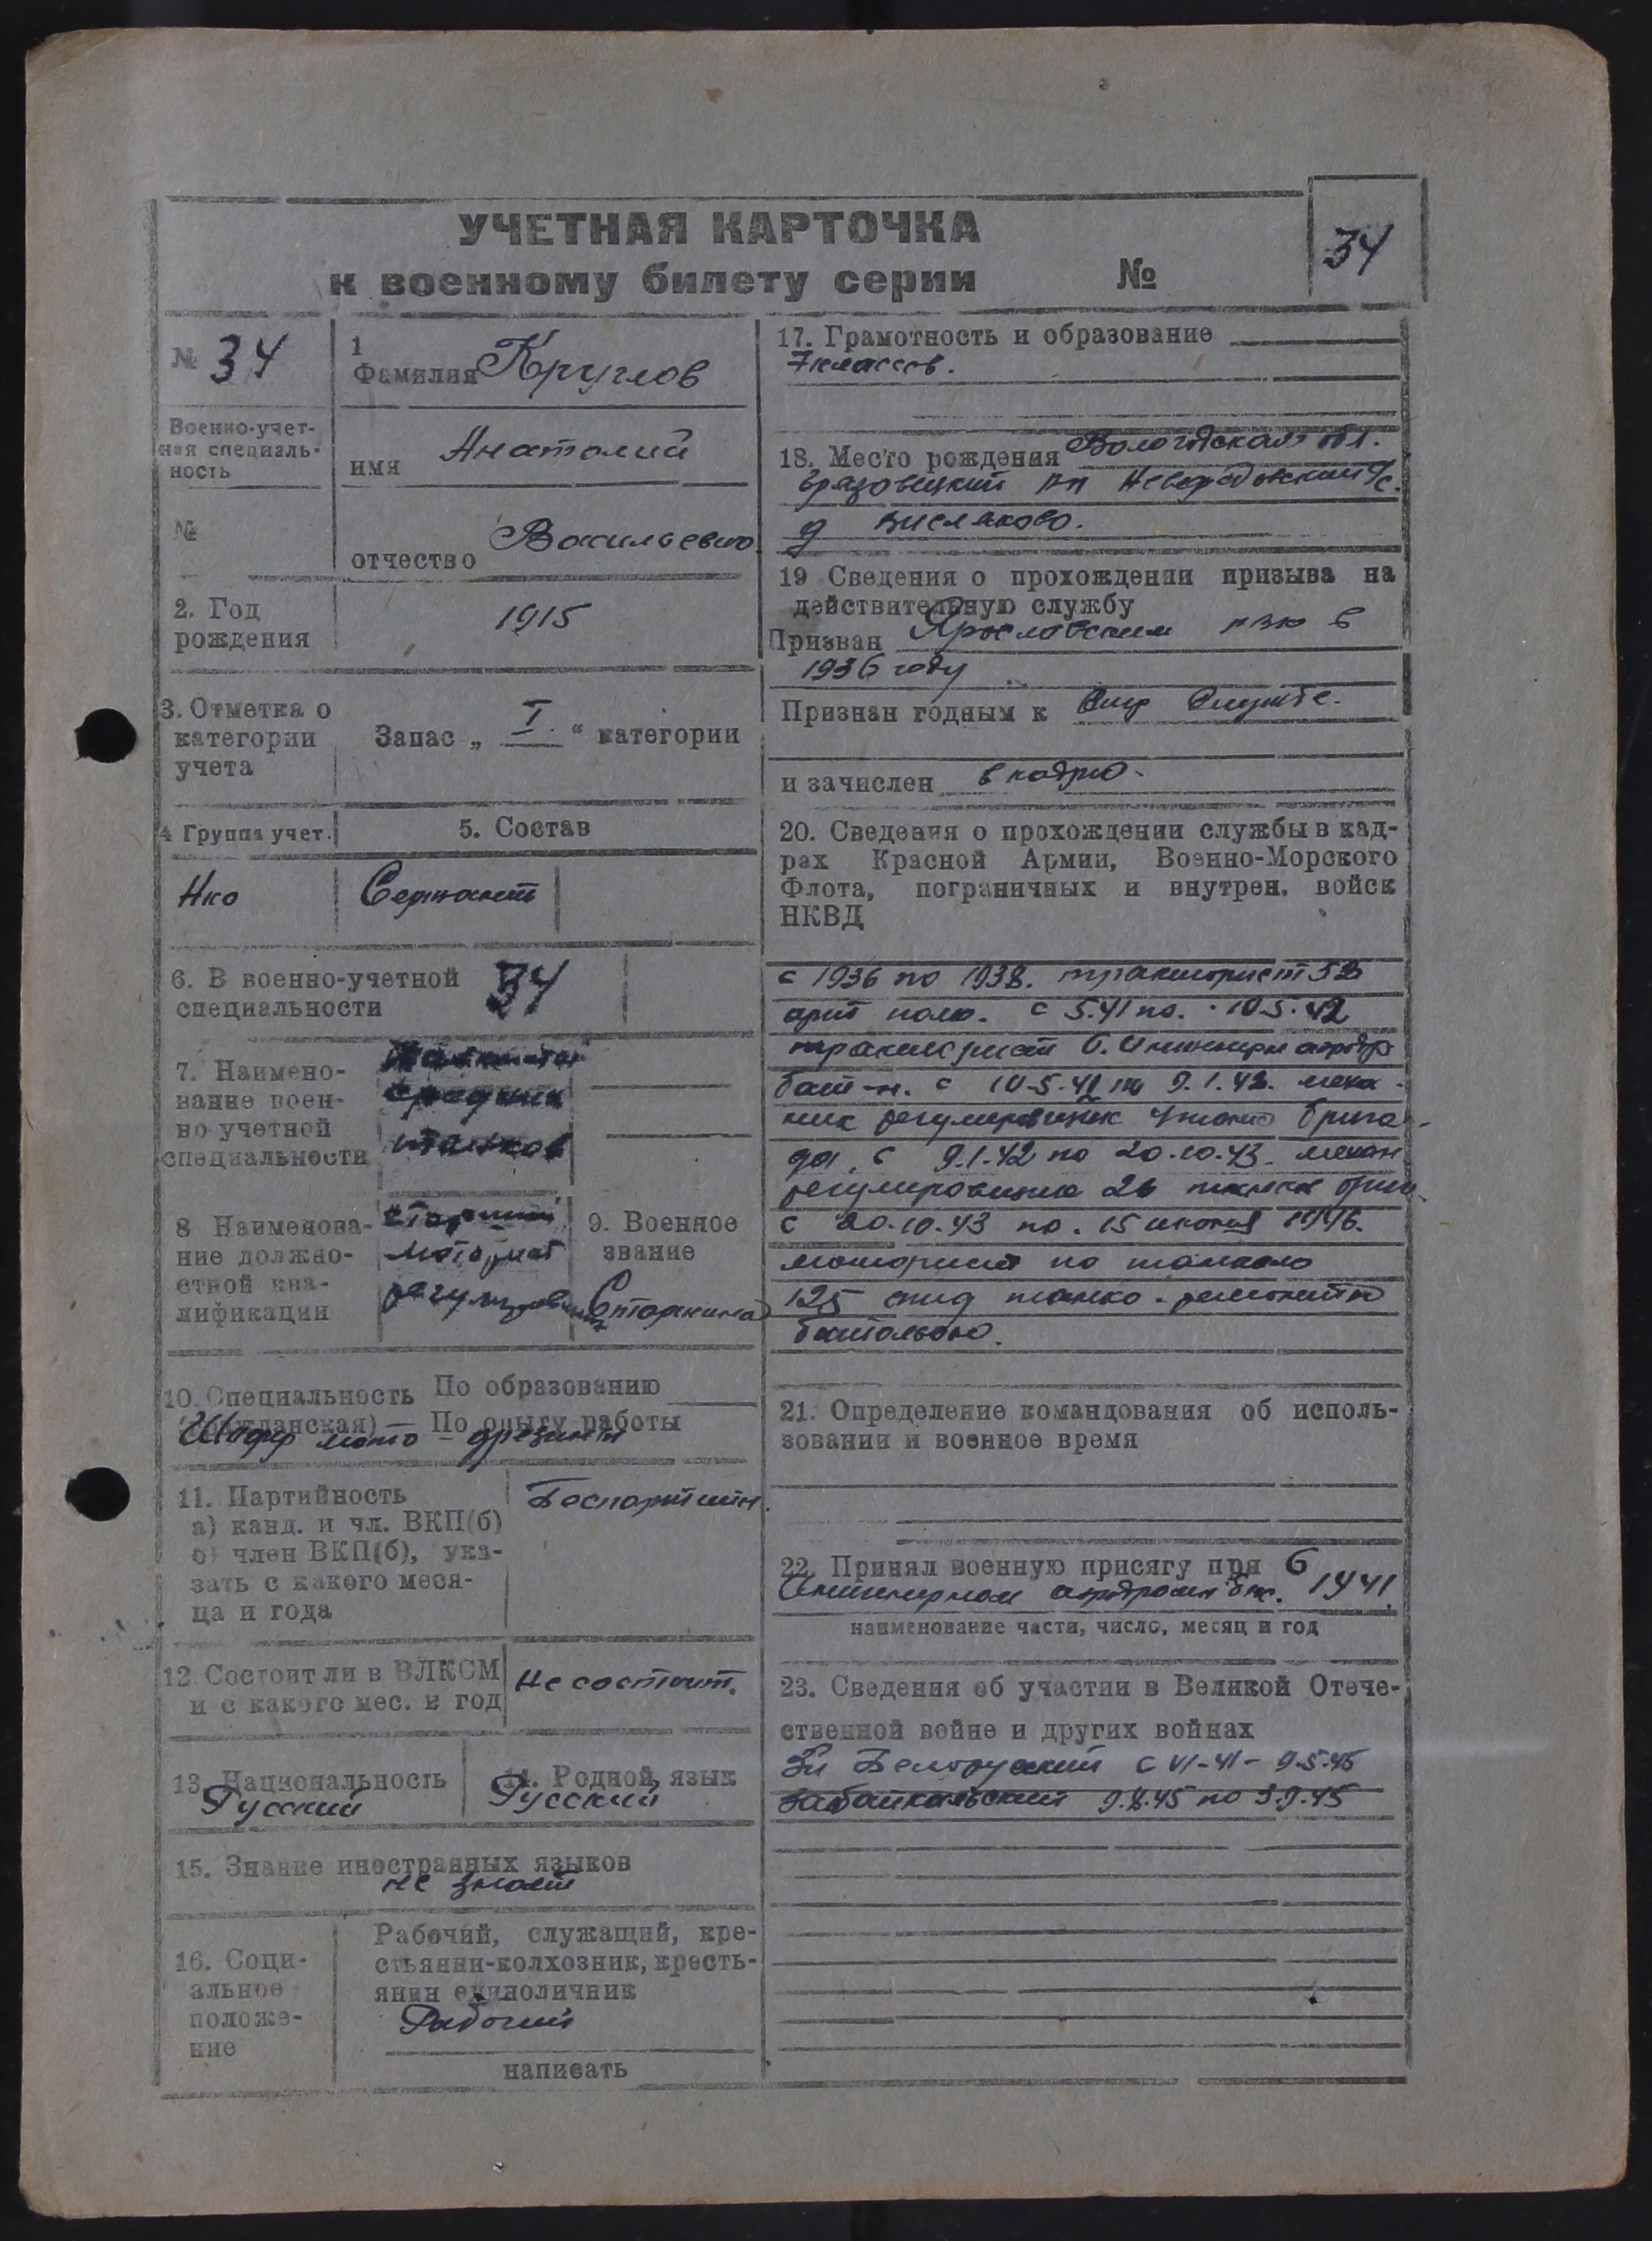 УЧЕТНАЯ КАРТОЧКА
к военному билету серии №
34
№ 34
Военно-учет-
ная специаль-
ность
№
1
Фамилия Круглов
имя Анатолий
отчество Васильевич
2. Год
рождения
1915
3. Отметка о
категории
учета
Запас „ I. “ категории
4 Группа учет.
5. Состав
Нко
Сержант
6. В военно-учетной
специальности
34
7. Наимено-
вание воен-
но учетной
специальности
танков
8 Наименова-
ние должно-
стной ква-
лификации
старший
моторист
9. Военное
звание
Старшина
10. Специальность
(гражданская)
По образованию
По опыту работы
Шофер мото-дрезины
11. Партийность
а) канд. и чл. ВКП(б)
б) член ВКП(б), ука-
зать с какого меся-
ца и года
Беспартийн.
12 Состоит ли в ВЛКСМ
и с какого мес. и год
Не состоит.
13. Национальность
Русский
14. Родной язык
Русский
15. Знание иностранных языков
не знает
16. Соци-
альное
положе-
ние
Рабочий, служащий, кре-
стьянин-колхозник, кресть-
янин единоличник
Рабочий
написать
17. Грамотность и образование
7 классов.
18. Место рождения Вологодская обл.
Грязовецкий рн с/с.
д
19 Сведения о прохождении призыва на
действительную службу
Призван Ярославским рвк в
1936 году
Признан годным к Стр Службе.
и зачислен в кадры.
20. Сведения о прохождении службы в кад-
рах Красной Армии, Военно-Морского
Флота, пограничных и внутрен. войск
НКВД
с 1936 по 1938. тракторист 53
арт полк. с 5.41 по. 10.5.42
тракторист 6. Инженерн аэродр
бат-н. с 10.5.42 по 9.1.42. меха-
ник регулировщик танко брига-
да. с 9.1.42 по 20.10.43. механ
регулировщик 26 танков бриг.
с 20.10.43 по. 15 июня 1946.
моторист по танкам
125 танко-ремонтн
батальона.
21. Определение командования об исполь-
зовании и военное время
22. Принял военную присягу при 6
Инженерном аэродромн бат. 1941.
наименование части, число, месяц и год
23. Сведения об участии в Великой Отече-
ственной войне и других войнах
Белорусский с VI-41 - 9.5.45
Забайкальский 9.8.45 по 3.9.45